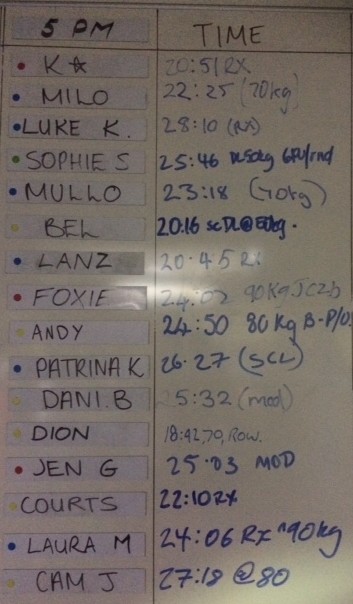 5 PM TIME
K☆ 20:51 RX
MILO 22:25 (70kg)
LUKE K. 28:10 (RX)
SOPHIE S 25:46 DL50kg
MULLO 23:18 (70kg)
BEL 20:16 SCDL@50kg.
LANZ 20:45 RX
FOXIE 24:02 90Kg
ANDY 24:50 80Kg
PATRINA K 26:27 (SCL)
DANI.B 5:32 (mod)
DION 18:42, 70, ROW.
JEN G 25:03 MOD
COURTS 22:10 RX
LAURA M 24:06 RX ^90kg
CAM J 27:18 @80